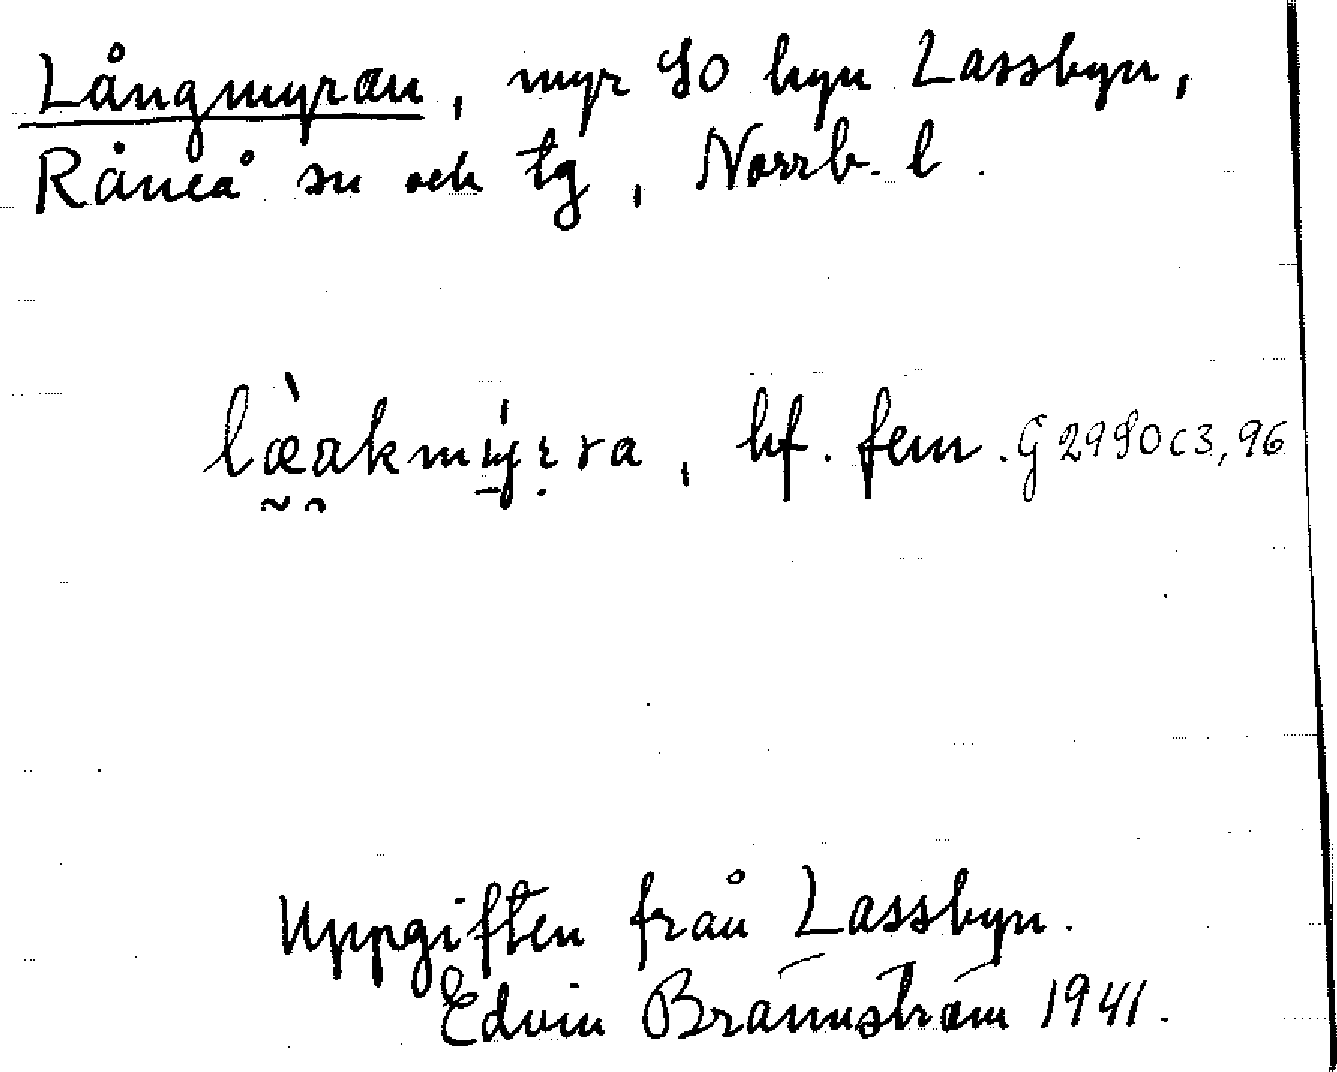 Långmyran, myr SO byn Lassbyn,
Råneå sn och tg, Norrb. l.
bf. fem. G2980C3,96
Uppgiften från Lassbyn.
Edvin Brännström 1941.